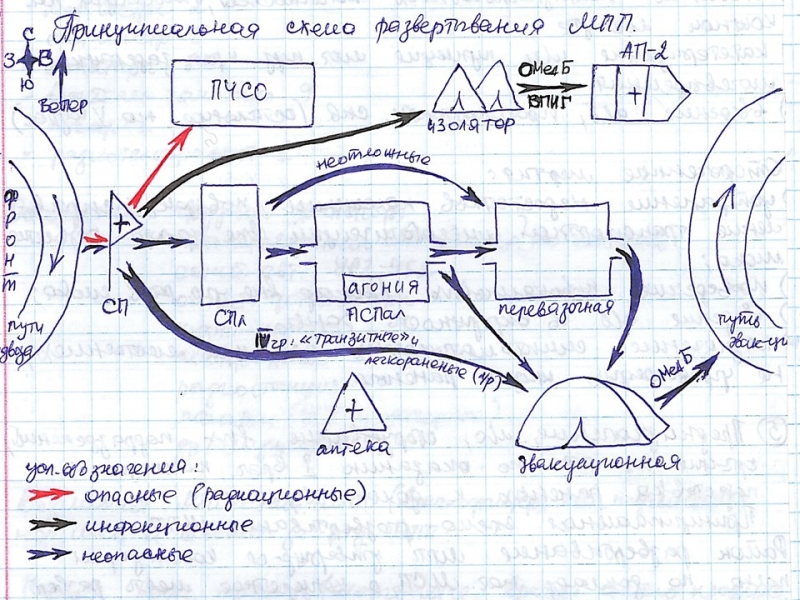 Принципиальная схема развертывания МПП.
С
З В
Ю
Ветер
ПЧСО
изолятор
ОМедБ
ВПИГ
АП-2
неотложные
фронт
СП
СПл
агония
ПСПал
перевязочная
пути
IV гр: «транзитные» и
легкораненые (гр)
ОМедБ
путь
эвакуации
аптека
эвакуационная
усл. обозначения:
опасные (радиационные)
инфекционные
неопасные